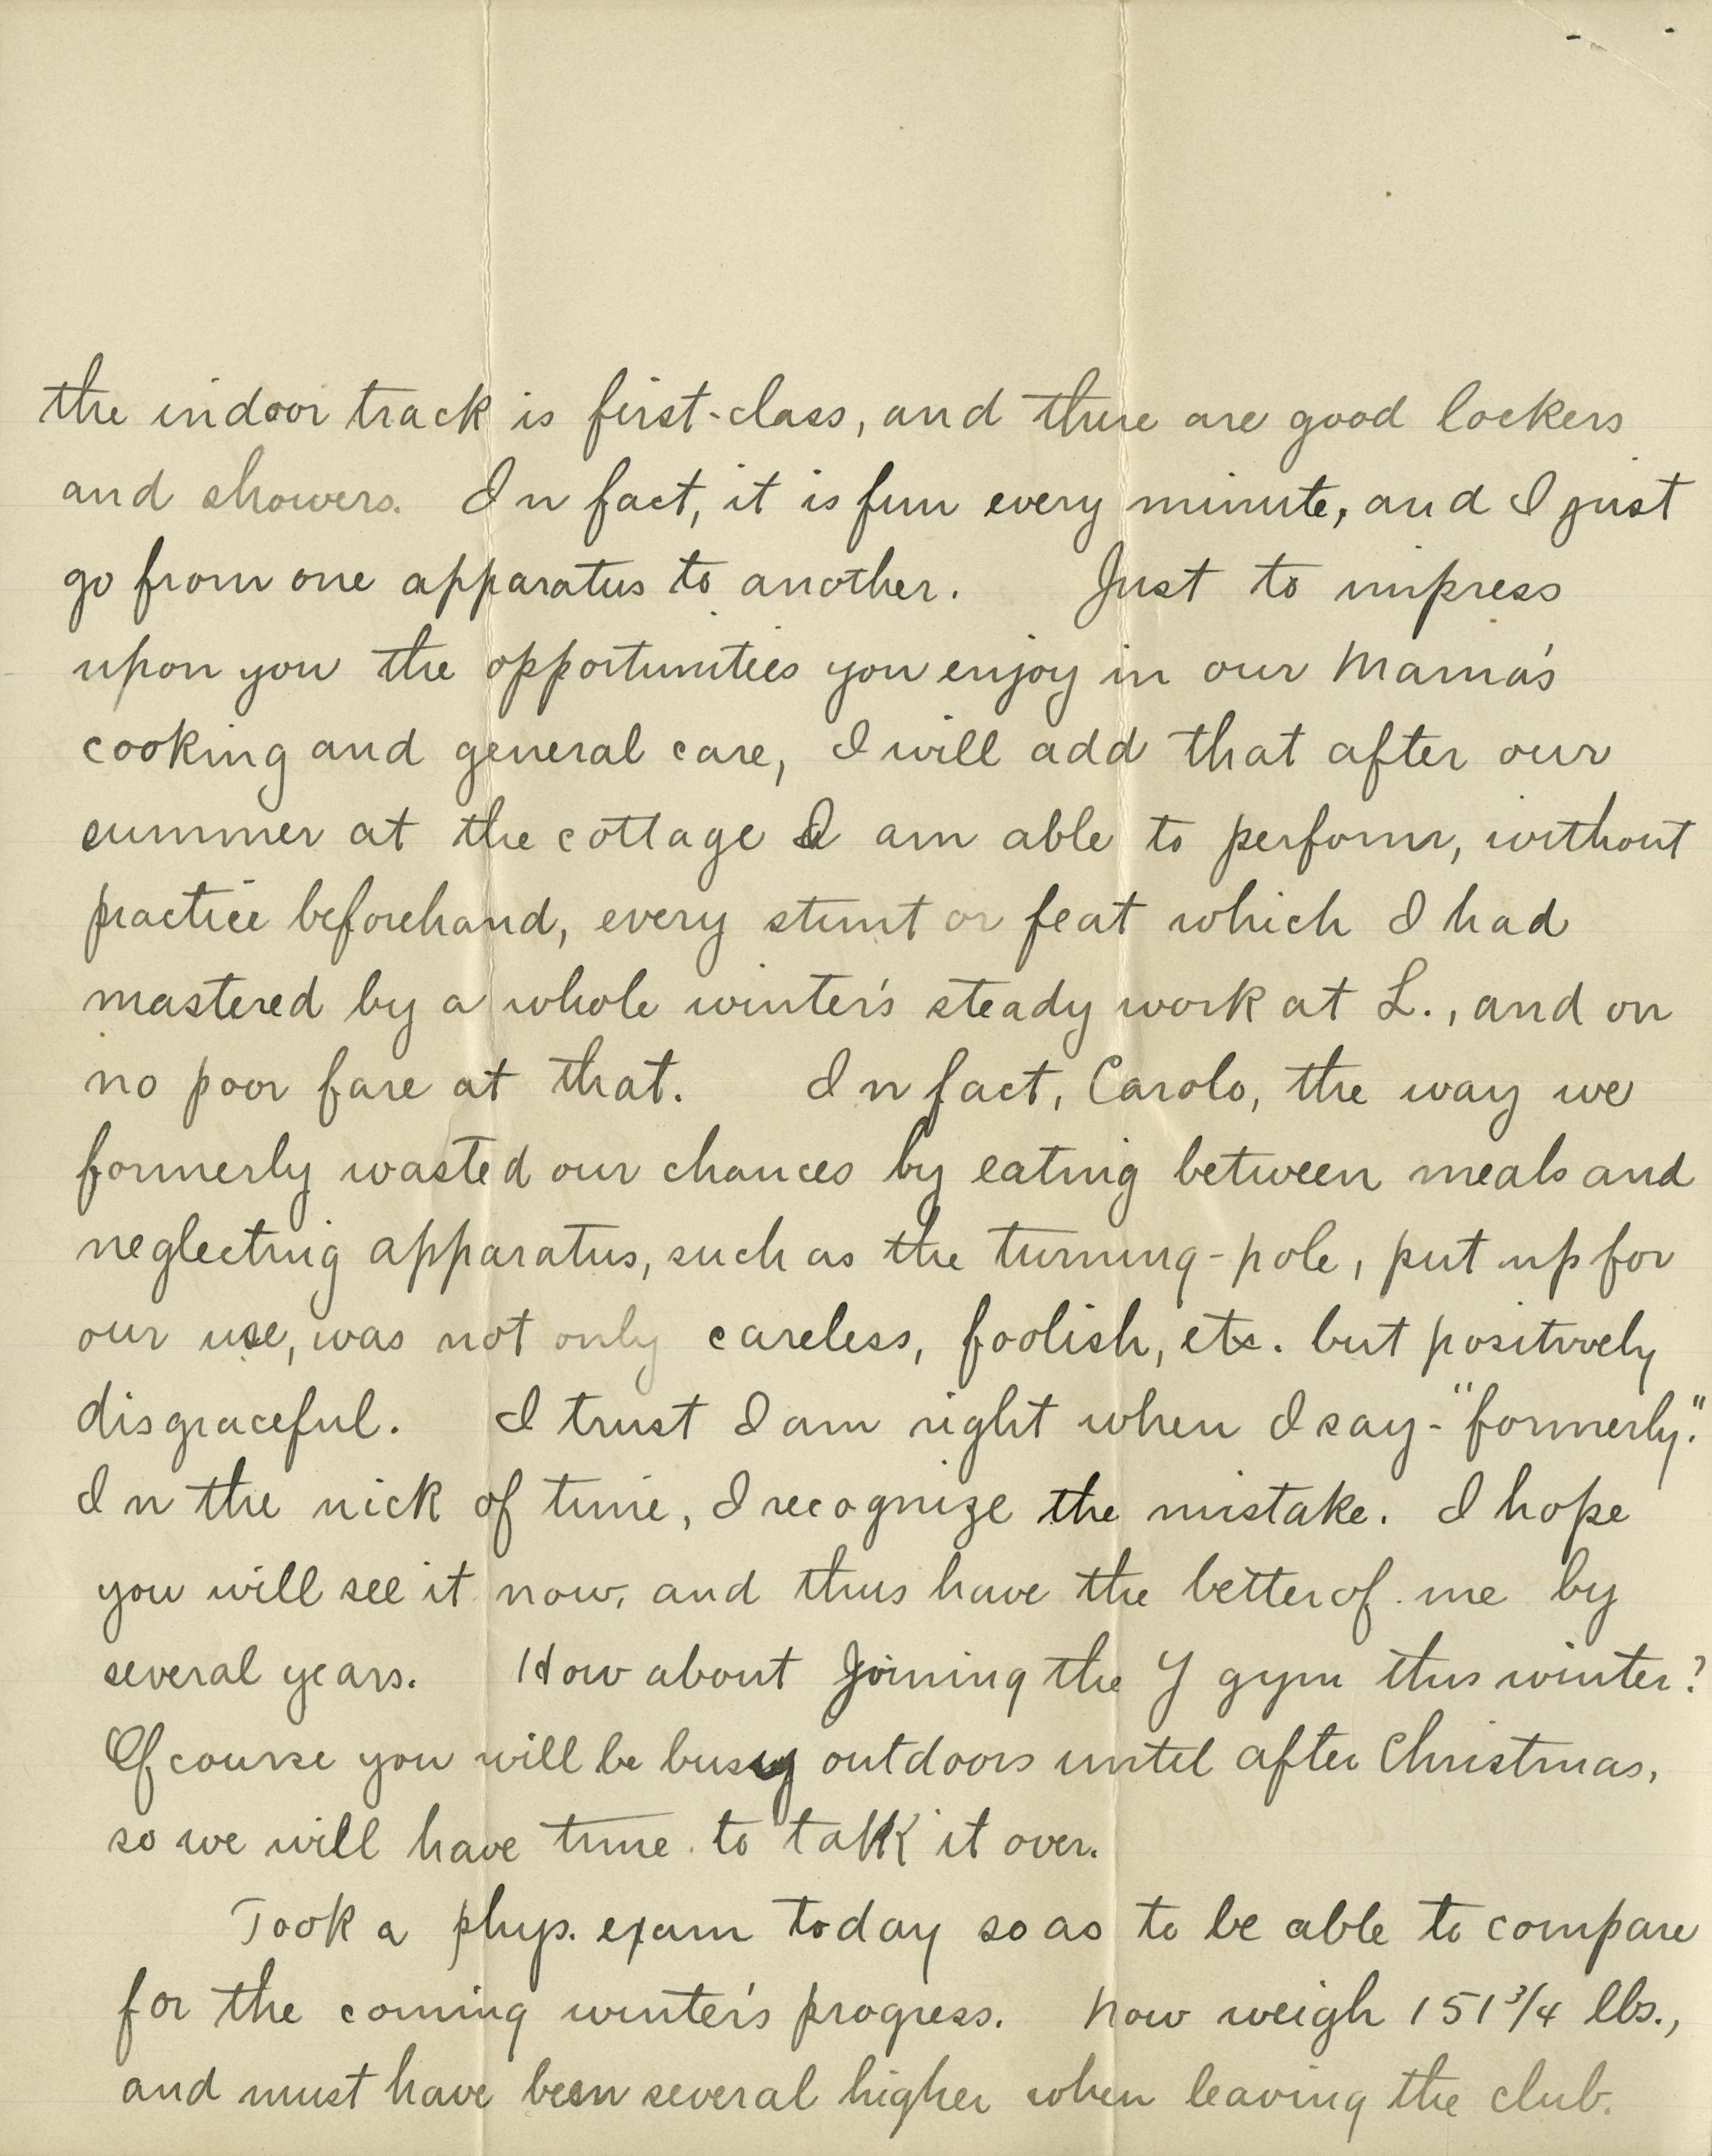 the indoor track is first-class, and there are good lockers
and showers. In fact, it is fun every minute, and I just
go from one apparatus to another. Just to impress
upon you the opportunities you enjoy in our Mama's
cooking and general care, I will add that after our
summer at the cottage I am able to perform, without
practice beforehand, every stunt or feat which I had
mastered by a whole winter's steady work at L., and on
no poor fare at that. In fact, Carolo, the way we
formerly wasted our chances by eating between meals and
neglecting apparatus, such as the turning-pole, put up for
our use, was not only careless, foolish, etc. but positively
disgraceful. I trust I am right when I say - "formerly."
In the nick of time, I recognize the mistake. I hope
you will see it now, and thus have the better of me by
several years. How about joining the Y gym this winter?
Of course you will be busy outdoors until after Christmas,
so we will have time to talk it over.
Took a phys. exam today so as to be able to compare
for the coming winter's progress. Now weigh 151 3/4 lbs.,
and must have been several higher when leaving the club.